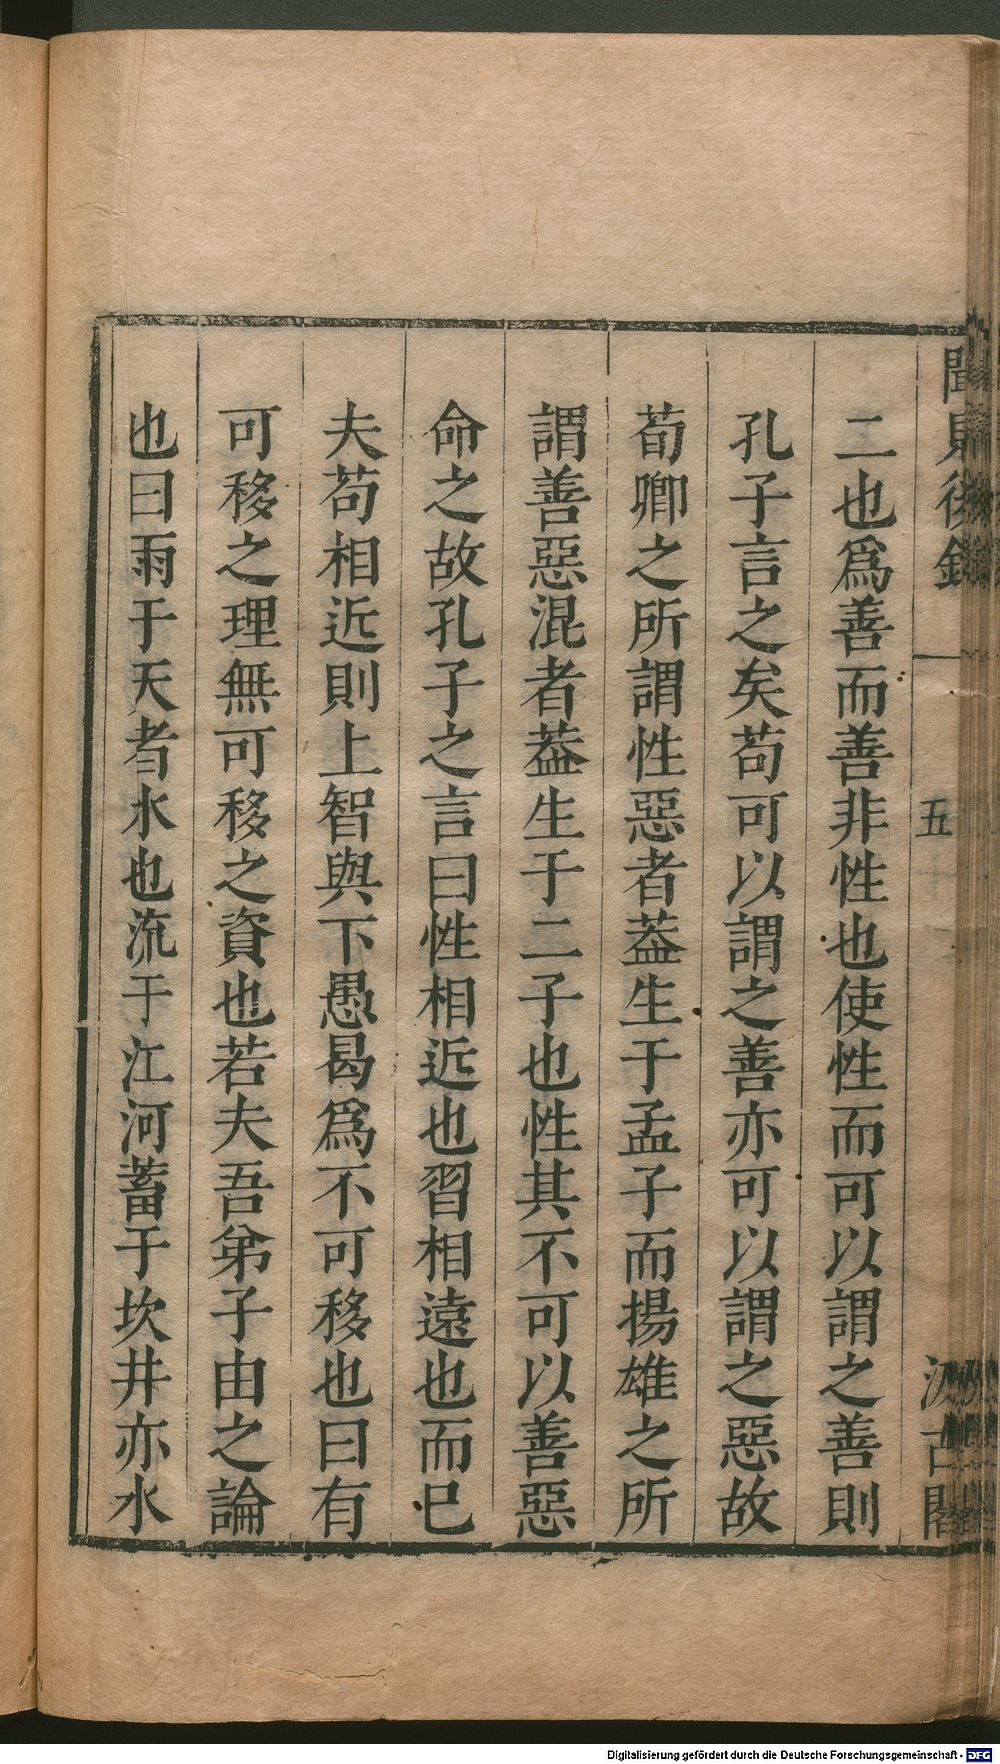 聞見後錄 一 五 汲古閣
二也爲善而善非性也使性而可以謂之善則
孔子言之矣苟可以謂之善亦可以謂之惡故
荀卿之所謂性惡者葢生于孟子而揚雄之所
謂善惡混者葢生于二子也性其不可以善惡
命之故孔子之言曰性相近也習相遠也而已
夫苟相近則上智與下愚曷爲不可移也曰有
可移之理無可移之資也若夫吾弟子由之論
也曰雨于天者水也流于江河蓄于坎井亦水
Digitalisierung gefördert durch die Deutsche Forschungsgemeinschaft - DFG